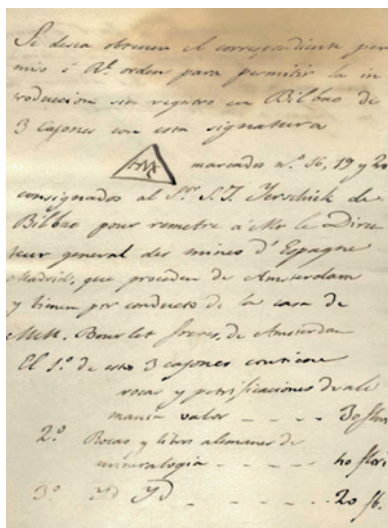 Se desea obtener el correspondiente per
miso ó Rl. orden para permitir la in
troduccion sin registro en Bilbao de
3 Cajones con esta signatura
marcados n.os 16, 19 y 20
consignados al Sr. S. J. Jerschick de
Bilbao pour remetre à Mr le Direc
teur general des mines d'Espagne
Madrid; que proceden de Amsterdam
y vienen por conducto de la casa de
MM. Bourlet freres, de Amsterdan
El 1.º de estos 3 cajones contiene
rocas y petrificaciones de ale
mania valor - - - - 30 flori
2.º Rocas y libros alemanes de
mineralogia - - - - 40 flori
3.º Yd Yd - - - - 20 fl.